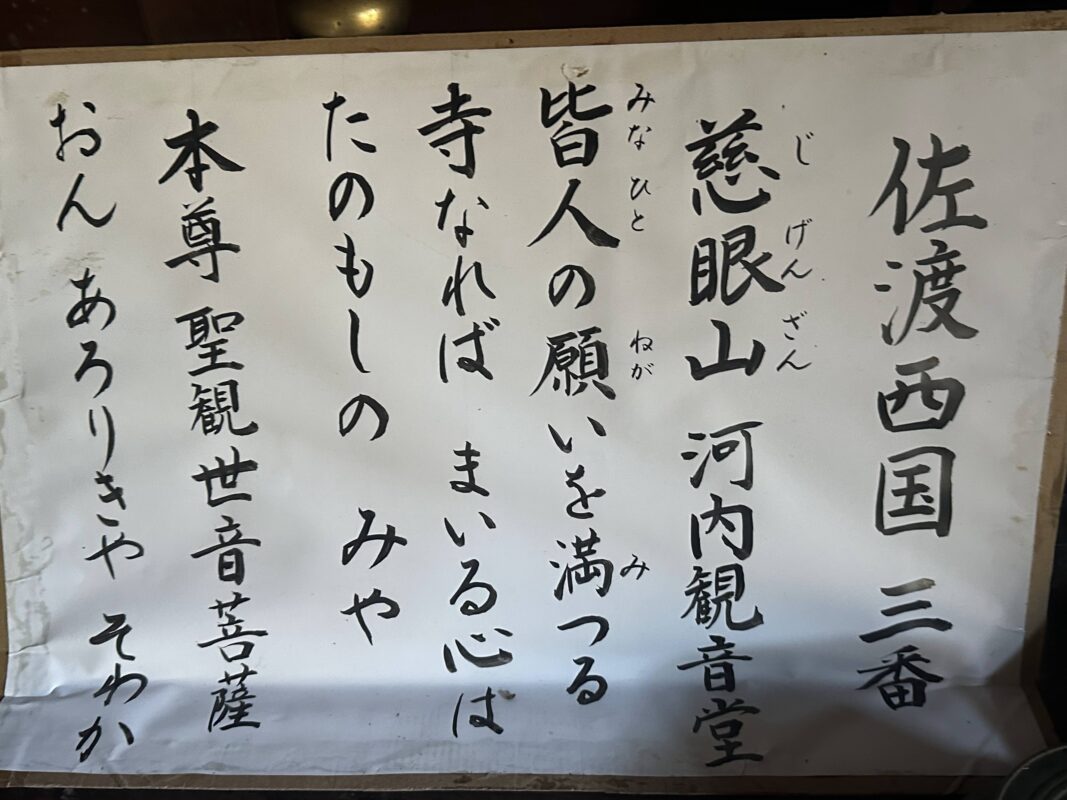 佐渡西国 三番
慈眼山 河内観音堂
じ げん ざん
皆人の願いを満つる
みな ひと ねが み
寺なれば まいる心は
たのもしの みや
本尊 聖観世音菩薩
おん あろりきや そわか